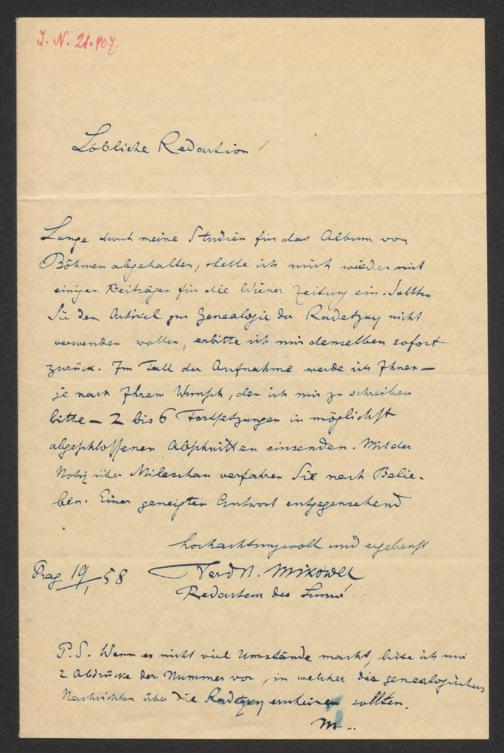 J. N. 21.907.
Löbliche Redaction!
Lange durch meine Studien für das Album von
Böhmen abgehalten, stelle ich mich wieder mit
einigen Beiträgen für die Wiener Zeitung ein. Sollten
Sie den Artikel zur Genealogie der Radetzky nicht
verwenden wollen, erbitte ich mir denselben sofort
zurück. Im Fall der Aufnahme werde ich Ihnen —
je nach Ihrem Wunsch, den ich mir zu schreiben
bitte — 2 bis 6 Fortsetzungen in möglichst
abgeschlossenen Abschnitten einsenden. Mit der
Notiz über Mileschau verfahren Sie nach Belie-
ben. Einer geneigten Antwort entgegensehend
hochachtungsvoll und ergebenst
Prag 19/1 58 Ferd. B. Mikowec
Redacteur des Lumír
P.S. Wenn es nicht viel Umstände macht, bitte ich mir
2 Abdrücke der Nummer vor, in welcher die genealogischen
Nachrichten über die Radetzky erscheinen sollten.
M..